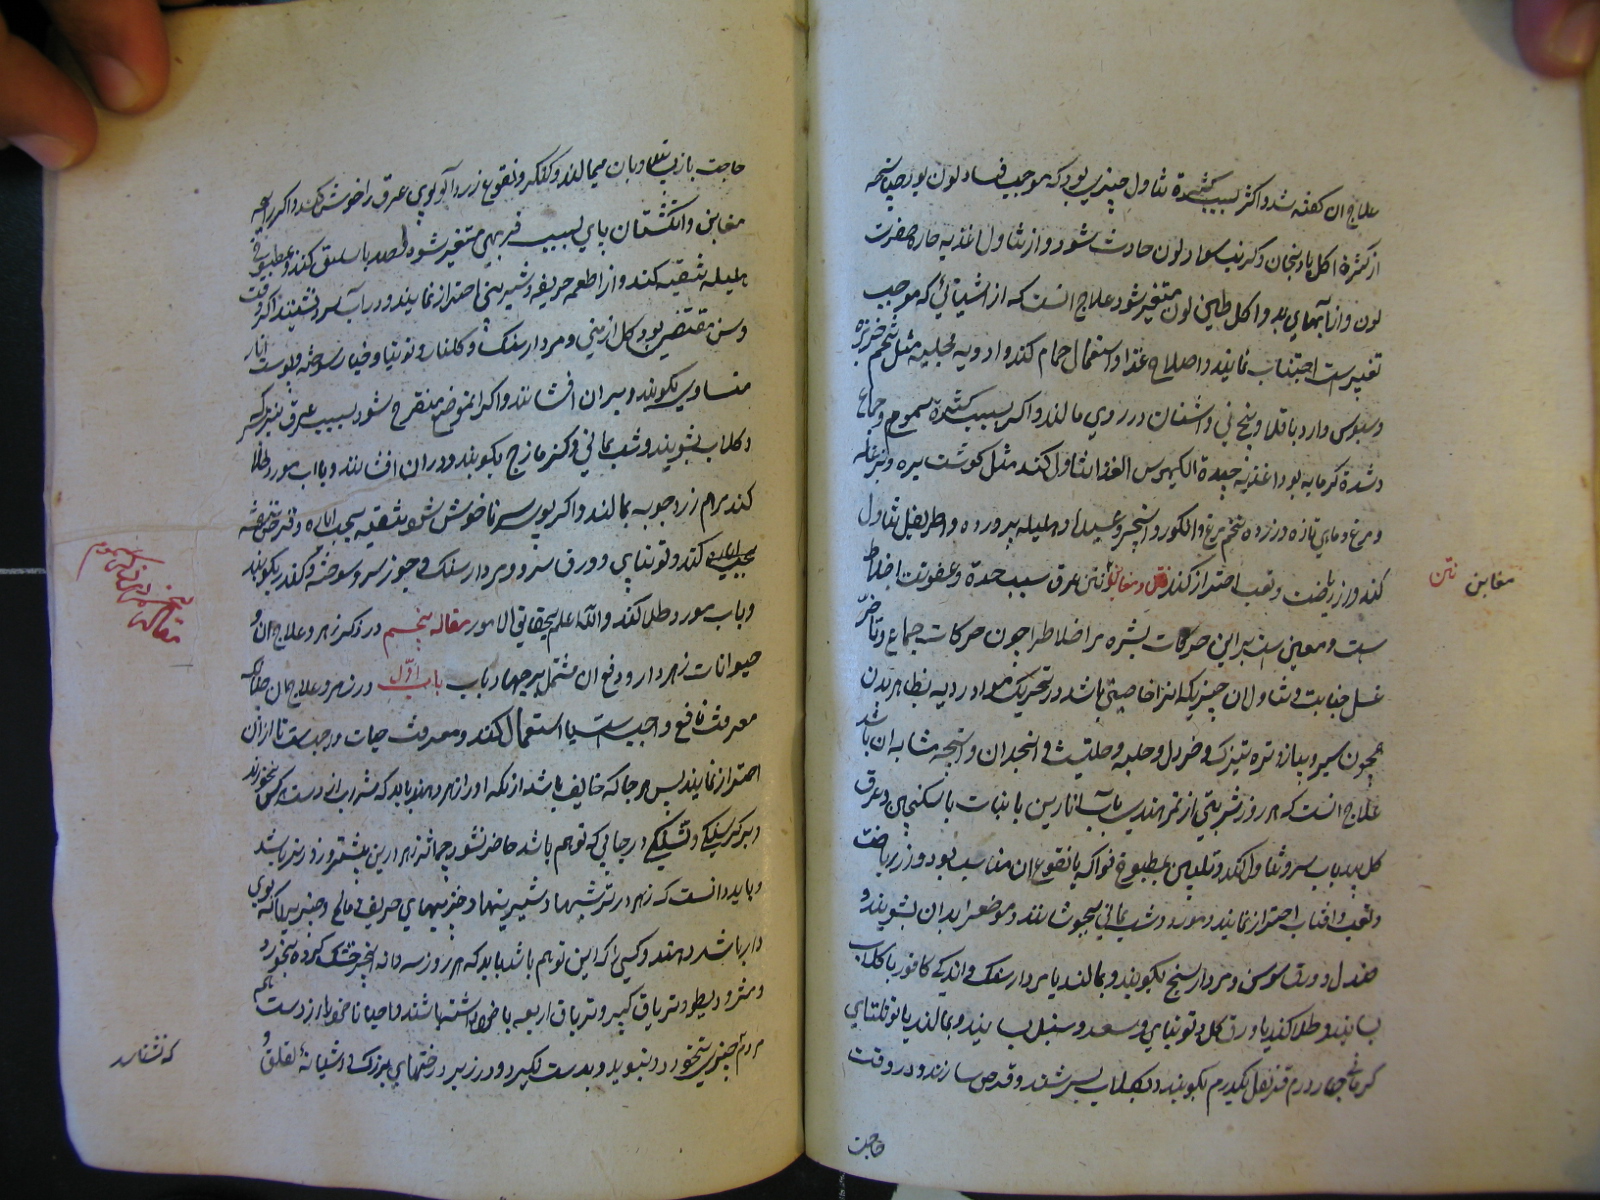 علاج ان کفته شد و اکثر بسبب کثرة تناول چیزی بود که موجب فساد لون بود چنانچه
از کثرة اکل بادنجان و کرنب سواد لون حادث شود و از تناول اغذیه حاره صفرت
لون و از آبهای بد و اکل طین لون متغیر شود علاج انست که از اشیائی که موجب
تغییر ست اجتناب نمایند و اصلاح غذا و استعمال حمام کنند و ادویه مجلیه مثل تخم خربزه
و سبوس و ارد باقلا و بیخ نی و اشنان در روی مالند و اکر بسبب کثرة سموم و جماع
و شدة کرما به بود اغذیه جیدة الکیموس الغذا تناول کنند مثل کوشت بره و بزغاله
و مرغ و ماهی تازه و زرده تخم مرغ و انکور و انجیر و هلیله پرورده و اطریفل تناول
کنند و از ریاضت و تعب احتراز کنند نتن و مغابن نتن عرق بسبب حدة و عفونت اخلاط
ست و معین ست براین حرکات بشره مر اخلاط را چون حرکات جماع و تاخیر
غسل جنابت و تناول ان چیزیکه انرا خاصیتی باشد در تحریک مواد ردیه بظاهر بدن
همچون سیر و پیاز و تره تیزک و خردل و حلبه و حلتیت و انجدان و انچه مشابه ان باشد
علاج انست که هر روز شربتی از تمر هندی باب انارین یا نبات یا سکنجبین و عرق
کل بید باب سرد تناول کنند و تلیین بمطبوخ فواکه یا نقوع ان مناسب بود و از ریاضت
و تعب و افتاب احتراز نمایند و مورد و شب یمانی بجوشانند و موضع را بدان بشویند و
صندل و ورق سوسن و مردارسنج بکوبند و بمالند یا مردارسنک و اندکی کافور با کلاب
بسایند و طلا کنند یا ورق کل و توتیای و سعد و سنبل بسایند و بمالند یا توتیای
کرمانی چهار درم قرنفل یکدرم بکوبند و بکلاب بسرشند و قرص سازند و در وقت
حاجت
مغابن نتن
حاجت باز بسایند و بان میمالند و کنکر و نقوع زردآلو بوی عرق را خوش کند و اکر رایحه
مغابن و انکشتان پای بسبب فربهی متغیر شود فصد باسلیق کنند و بمطبوخ
هلیله تنقیه کنند و از اطعمه حریفه و شیرینی احتراز نمایند و در آب سرد نشینند اکر وقت
و سن مقتضی بود کل ارمنی و مردارسنک و کلنار و توتیا و خیار سوخته و پوست انار
متساوی بکوبند و بران افشانند و اکر انموضع متقرح شود بسبب عرق بسرکه
و کلاب بشویند و شب یمانی و کزمازج بکوبند و دران افشانند و باب مورد طلا
کنند مرهم زردچوبه بمالند و اکر بوی سر ناخوش شود تنقیه بحب ایاره و غرغره
کنند و توتیای و ورق سرو و مردارسنک و جوز سرو سوخته و کندر بکوبند
و باب مورد طلا کنند والله اعلم بحقایق الامور مقاله پنجم در ذکر زهر و علاج ان و
حیوانات زهردار و دفع ان مشتمل بر چهار باب باب اول در زهر و علاج ان
معرفت نافع واجب ست استعمال کنند و معرفت حیات واجبست تا از ان
احتراز نمایند پس هر جا که خایف باشد از انکه او را زهر دهند باید که شراب از دست هرکس نخورند
و بر کرسنکی و تشنکی در جایی که توهم باشد حاضر نشود چه تاثیر زهر درین بیشتر و زودتر باشد
و باید دانست که زهر در ترشیها و شیرینیها و چیزهای حریف و مالح و چیزیرا که بوی
دار باشد دهند و کسی را که این توهم باشد باید که هر روز سه دانه انجیر خشک کرده بخورد
و مثرودیطوس و تریاق کبیر و تریاق اربعه با خود داشته باشند و احیانا خورد از دست
مردم اجنبی نخورد و نبوید و بدست نکیرد و در زیر درختهای بزرک و اشیانه لقلق و
مقاله پنجم در ذکر سموم
که نشناسد